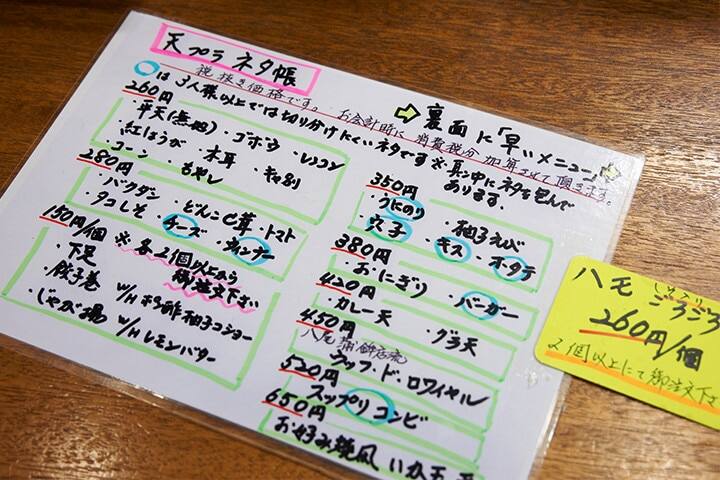 天プラ ネタ帳
税抜き価格です。お会計時に消費税分加算させて頂きます。
➡裏面に「早いメニュー」
○は3人様以上では切り分けにくいネタです※真ン中にネタを包んで
あります.
260円
・半天(無地)・ゴボウ・レンコン
・紅しょうが・木耳・キャベツ
・コーン・もやし
280円
・バクダン・どんこ茸・トマト
・タコしそ・チーズ・ウインナー
150円/個 ※各2個以上から
御注文下さい
・下足
・餃子巻 W/H ポン酢柚子コショー
・じゃが揚 W/H レモンバター
350円
・うにのり・柚子えび
・穴子・キス・ホタテ
380円
・おにぎり・バーガー
420円
・カレー天・グラ天
450円
八尾蒲鉾店流
ラップ・ド・ロワイヤル
520円
スップリコンビ
650円
お好み焼風いか玉
ハモ じゅんりごろごろ
260円/個
2個以上にて御注文下さ